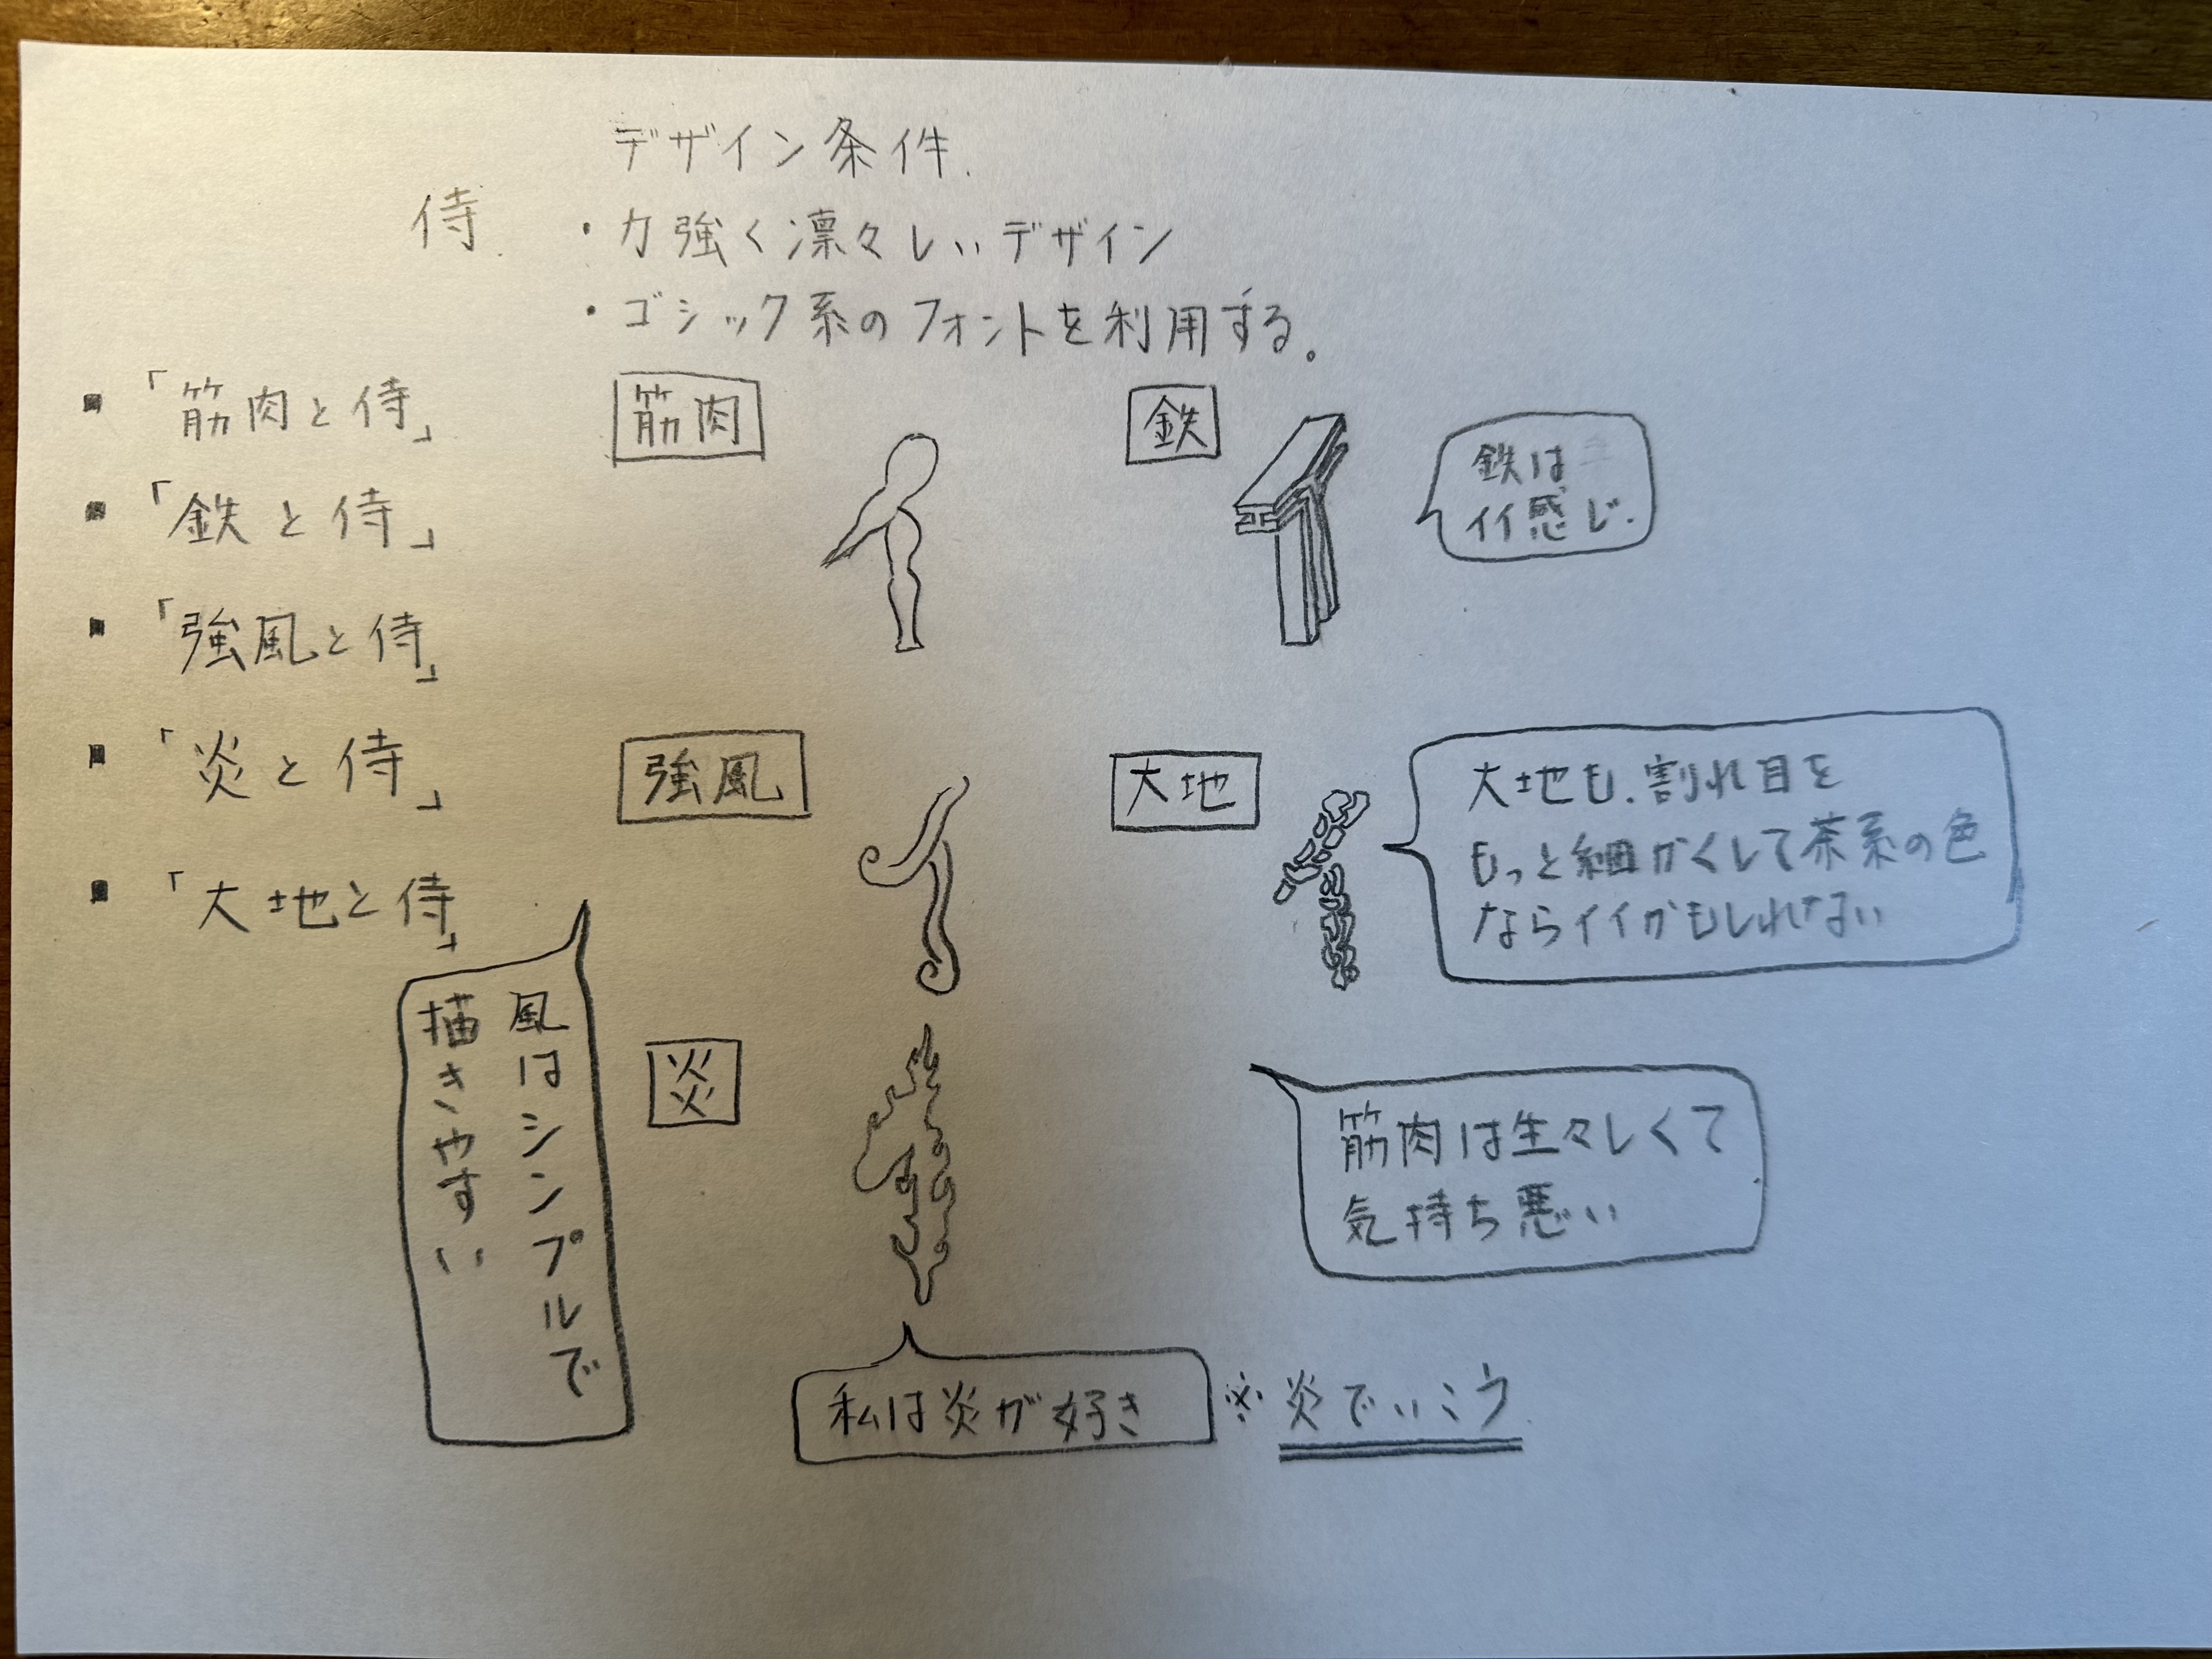 デザイン条件.
侍.
・力強く凛々しいデザイン
・ゴシック系のフォントを利用する。
■「筋肉と侍」
■「鉄と侍」
■「強風と侍」
■「炎と侍」
■「大地と侍」
筋肉
鉄
鉄は
イイ感じ.
強風
大地
大地も、割れ目を
もっと細かくして茶系の色
ならイイかもしれない
風はシンプルで
描きやすい
炎
筋肉は生々しくて
気持ち悪い
私は炎が好き
※炎でいこう.